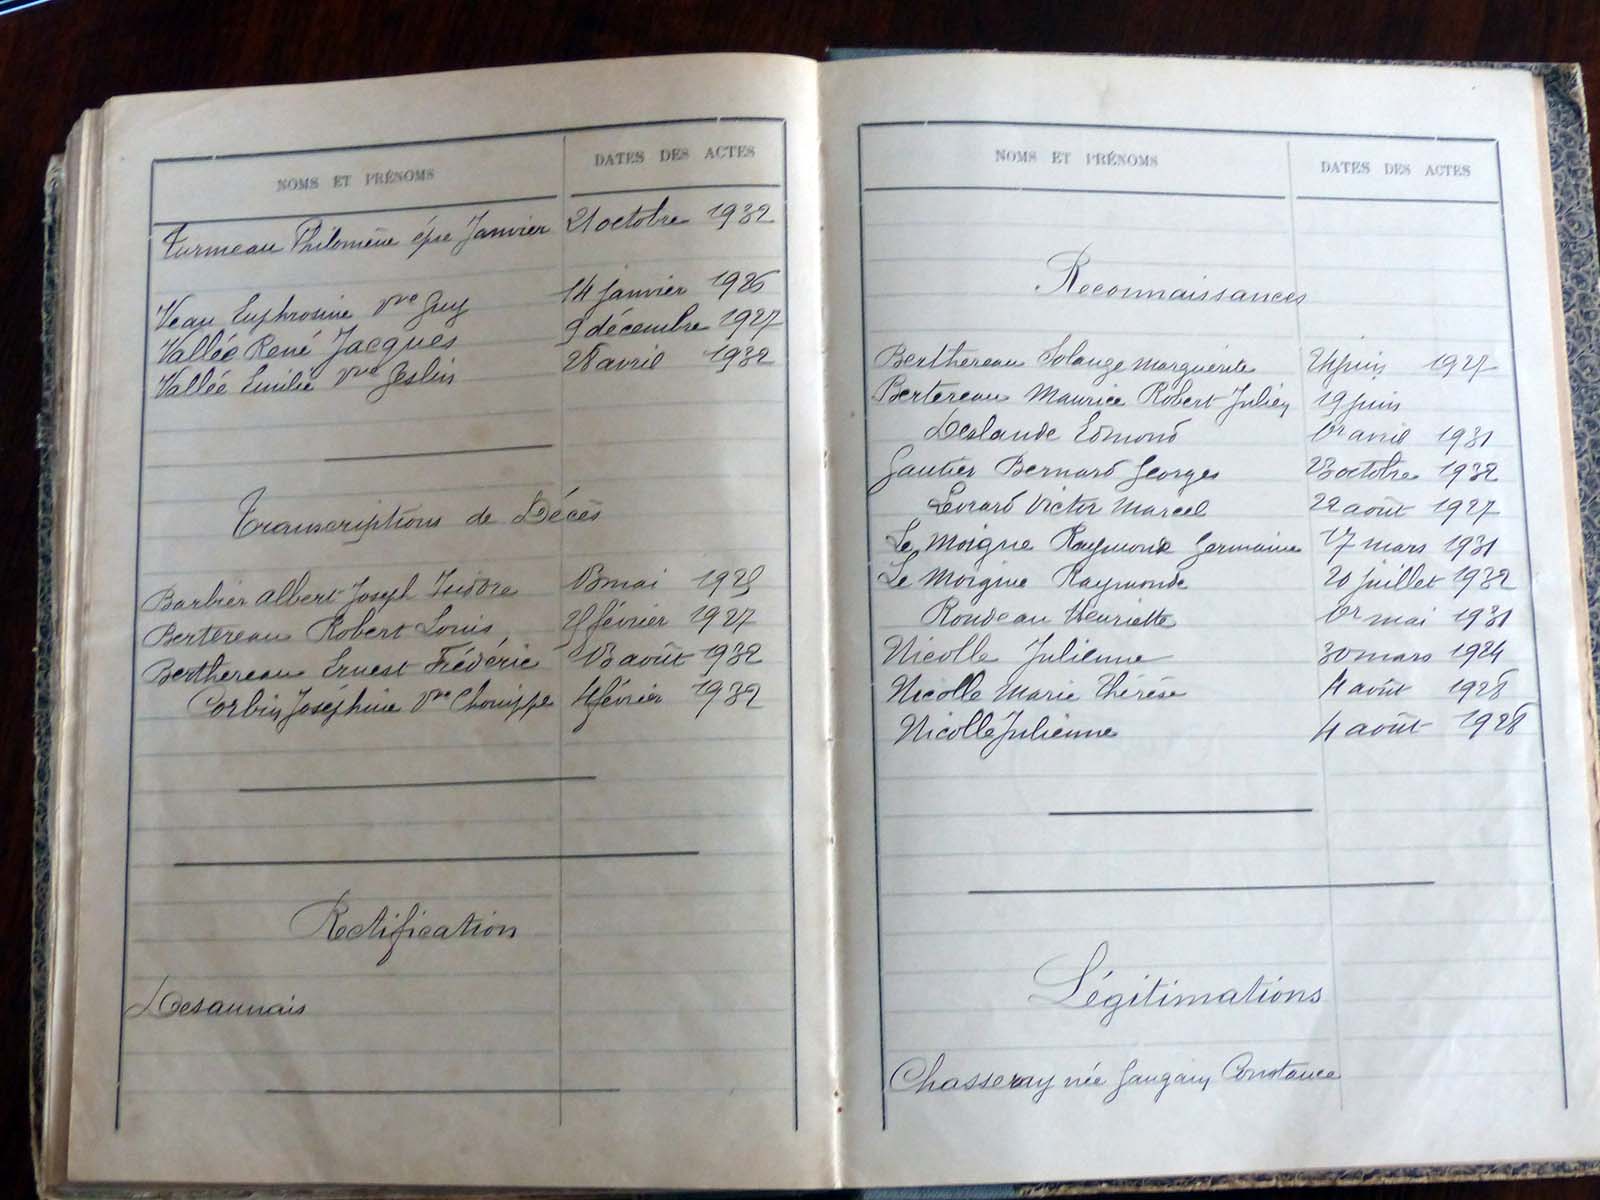 NOMS ET PRÉNOMS DATES DES ACTES
Turmeau Philomène épse Janvier 21 octobre 1932
Veau Euphrosine Vve Guy 14 janvier 1926
Vallée René Jacques 9 décembre 1927
Vallée Emilie Vve Geslin 28 avril 1932
Transcriptions de Décès
Barbier Albert Joseph Isidore 13 mai 1925
Bertereau Robert Louis 25 février 1927
Berthereau Ernest Frédéric 13 août 1932
Corbin Joséphine Vve Chouippe 4 février 1932
Rectification
Desaunais
NOMS ET PRÉNOMS DATES DES ACTES
Reconnaissances
Berthereau Solange Marguerite 24 juin 1927
Bertereau Maurice Robert Julien 19 juin
Deslande Edmond 1er avril 1931
Gautier Bernard Georges 23 octobre 1932
Levrard Victor Marcel 22 août 1927
Le Moigne Raymonde Germaine 17 mars 1931
Le Moigne Raymonde 20 juillet 1932
Rondeau Henriette 1er mai 1931
Nicolle Julienne 30 mars 1924
Nicolle Marie Thérèse 4 août 1928
Nicolle Julienne 4 août 1928
Légitimations
Chasseray née Gaugain Constance